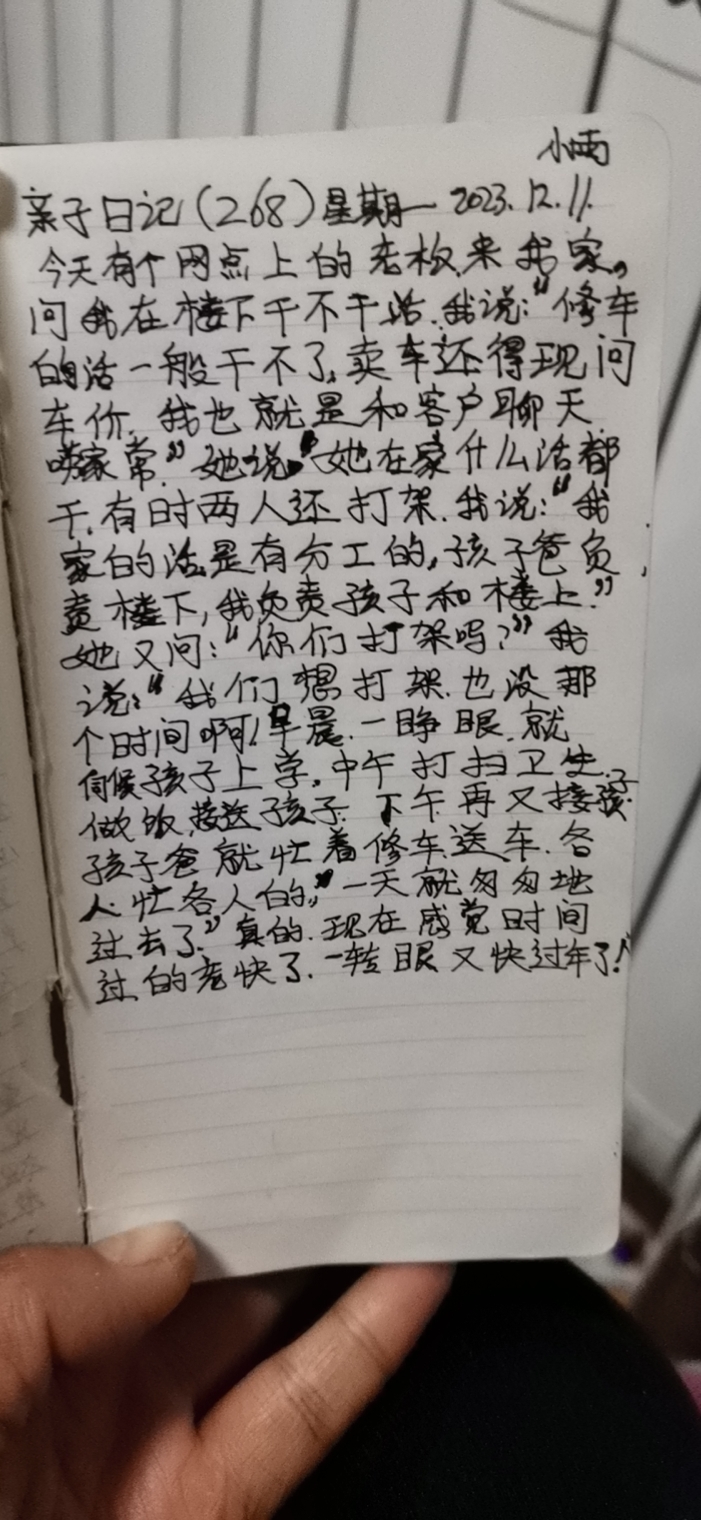 小雨
亲子日记(268)星期一 2023.12.11.
今天有个网点上的老板来我家,
问我在楼下干不干活.我说:“修车
的活一般干不了,卖车还得现问
车价.我也就是和客户聊天.
唠家常.”她说:“她在家什么活都
干,有时两人还打架.我说:“我
家的活是有分工的,孩子爸负
责楼下,我负责孩子和楼上.”
她又问:“你们打架吗?”我
说:“我们想打架.也没那
个时间啊!早晨.一睁眼.就
伺候孩子上学.中午打扫卫生.
做饭,接送孩子.下午再又接孩子
孩子爸就忙着修车,送车.各
人忙各人的,”一天就匆匆地
过去了.”真的.现在感觉时间
过的老快了.一转眼又快过年了!